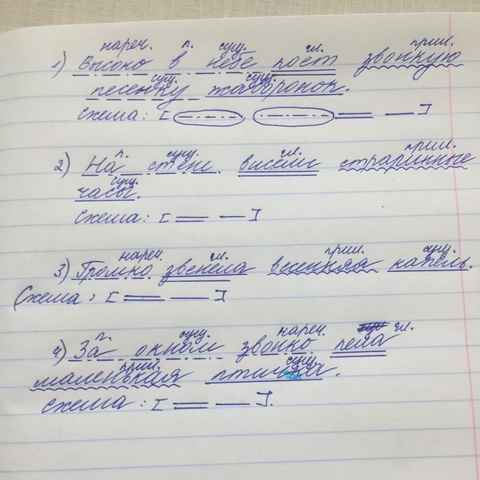 нареч. п. сущ. гл. прил.
1) Высоко в небе поёт звонкую
сущ. сущ.
песенку жаворонок.
схема: [ , ═ — ]
п. сущ. гл. прил.
2) На стене висели старинные
сущ.
часы.
схема: [ ═ — ]
нареч. гл. прил. сущ.
3) Громко звенела весенняя капель.
Схема: [ ═ — ]
п. сущ. нареч. гл.
4) За окном звонко пела
прил. сущ.
маленькая птичка.
схема: [ ═ — ].